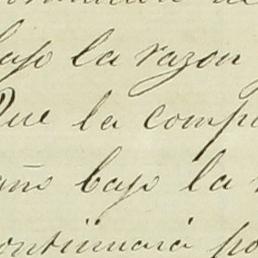 bajo la razon
Que la compa
año bajo la r
continuará po